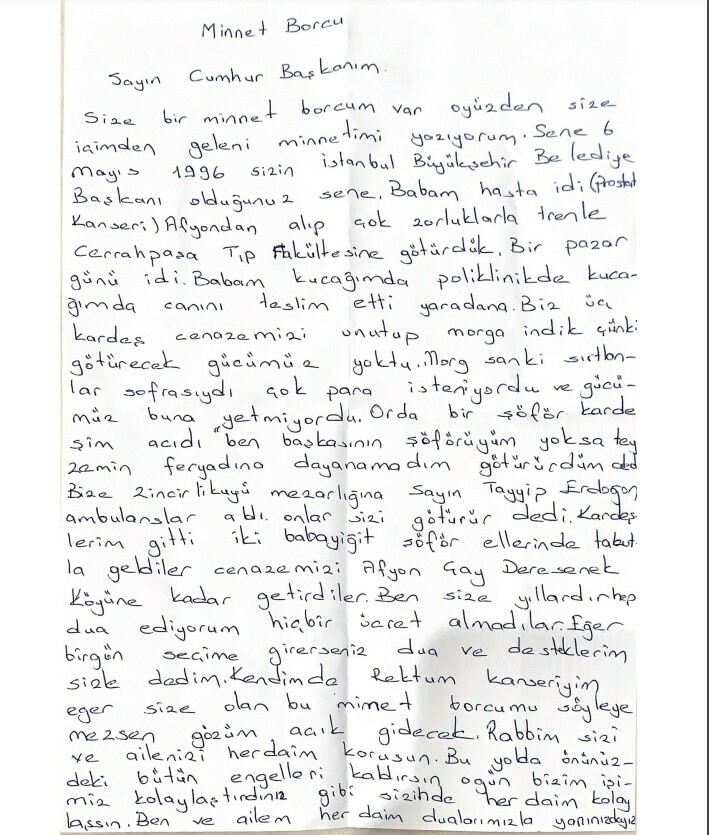 Minnet Borcu
Sayın Cumhur Başkanım.
Size bir minnet borcum var oyüzden size
içimden geleni minnetimi yazıyorum. Sene 6
mayıs 1996 sizin istanbul Büyükşehir Belediye
Başkanı olduğunuz sene. Babam hasta idi (Prostat
Kanseri) Afyondan alıp çok zorluklarla trenle
Cerrahpaşa Tıp Fakültesine götürdük. Bir pazar
günü idi. Babam kucağımda poliklinikde kuca-
ğımda canını teslim etti yaradana. Biz üç
kardeş cenazemizi unutup morga indik çünki
götürecek gücümüz yoktu. Morg sanki sırtlan-
lar sofrasıydı çok para isteniyordu ve gücü-
müz buna yetmiyordu. Orda bir şöför karde
şim acıdı "ben başkasının şöförüyüm yoksa tey
zemin feryadına dayanamadım götürürdüm dedi
Bize zincirlikuyu mezarlığına Sayın Tayyip Erdoğan
ambulanslar aldı. onlar sizi götürür dedi. Kardeş
lerim gitti iki babayiğit şöför ellerinde tabut
la geldiler cenazemizi Afyon Çay Deresenek
Köyüne kadar getirdiler. Ben size yıllardır hep
dua ediyorum hiçbir ücret almadılar. Eğer
birgün seçime girerseniz dua ve desteklerim
sizle dedim. Kendimde Rektum kanseriyim
eger size olan bu minet borcumu söyleye
mezsen gözüm açık gidecek. Rabbim sizi
ve ailenizi herdaim korusun. Bu yolda önünüz-
deki bütün engelleri kaldırsın ogün bizim işi-
miz kolaylaştırdınız gibi sizinde herdaim kolay
lassın. Ben ve ailem her daim dualarımızla yanınızdayız